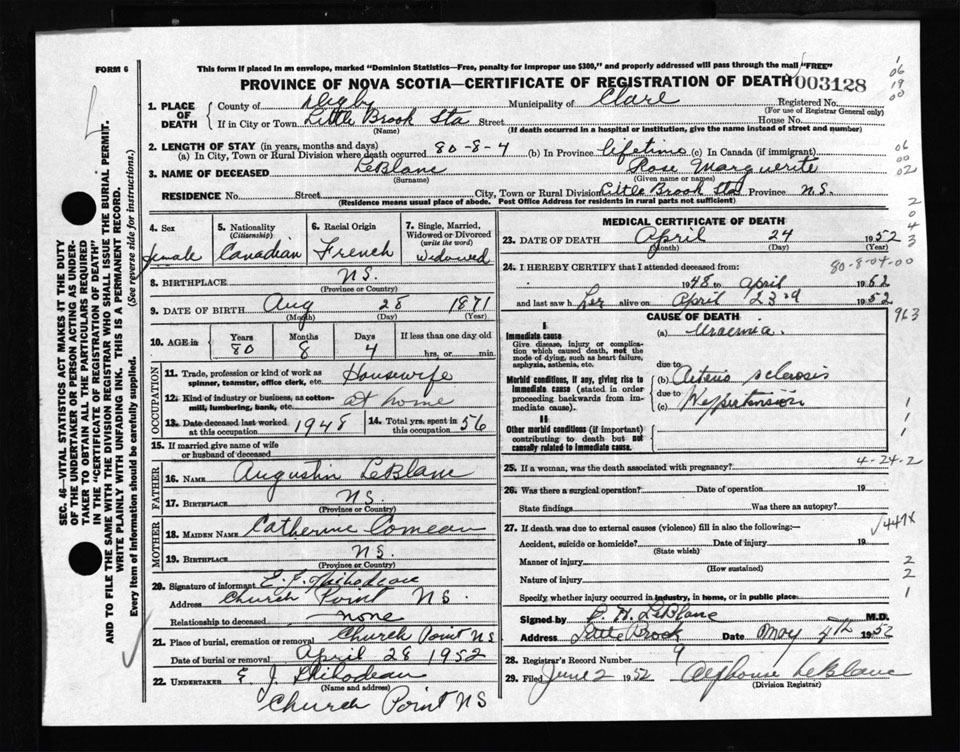 FORM 6
This form if placed in an envelope, marked "Dominion Statistics—Free, penalty for improper use $300," and properly addressed will pass through the mail "FREE"
PROVINCE OF NOVA SCOTIA—CERTIFICATE OF REGISTRATION OF DEATH 003128
1. PLACE OF DEATH
County of Digby Municipality of Clare Registered No.
(For use of Registrar General only)
If in City or Town Little Brook Sta Street House No.
(Name) (If death occurred in a hospital or institution, give the name instead of street and number)
2. LENGTH OF STAY (in years, months and days)
(a) In City, Town or Rural Division where death occurred 80-8-4 (b) In Province lifetime (c) In Canada (if immigrant)
3. NAME OF DECEASED LeBlanc Rose Marguerite
(Surname) (Given name or names)
RESIDENCE No. Street City, Town or Rural Division Little Brook Sta Province N.S.
(Residence means usual place of abode. Post Office Address for residents in rural parts not sufficient)
4. Sex female
5. Nationality (Citizenship) Canadian
6. Racial Origin French
7. Single, Married, Widowed or Divorced (write the word) Widowed
8. BIRTHPLACE N.S.
(Province or Country)
9. DATE OF BIRTH Aug 28 1871
(Month) (Day) (Year)
10. AGE in Years 80 Months 8 Days 4 If less than one day old hrs. or min.
OCCUPATION
11. Trade, profession or kind of work as spinner, teamster, office clerk, etc. Housewife
12. Kind of industry or business, as cotton-mill, lumbering, bank, etc. at home
13. Date deceased last worked at this occupation 1948
14. Total yrs. spent in this occupation 56
15. If married give name of wife or husband of deceased
FATHER
16. NAME Augustin LeBlanc
17. BIRTHPLACE N.S.
(Province or Country)
MOTHER
18. MAIDEN NAME Catherine Comeau
19. BIRTHPLACE N.S.
(Province or Country)
20. Signature of informant E. J. Thibodeau
Address Church Point N.S.
Relationship to deceased none
21. Place of burial, cremation or removal Church Point NS
Date of burial or removal April 28 1952
22. UNDERTAKER E. J. Thibodeau
(Name and address)
Church Point NS
MEDICAL CERTIFICATE OF DEATH
23. DATE OF DEATH April 24 1952
(Month) (Day) (Year)
80-8-04-00
24. I HEREBY CERTIFY that I attended deceased from:
1948 to April 1952
and last saw her alive on April 23rd 1952
CAUSE OF DEATH
963
I
Immediate cause
Give disease, injury or complication which caused death, not the mode of dying, such as heart failure, asphyxia, asthenia, etc.
(a) Uraemia
due to
Morbid conditions, if any, giving rise to immediate cause (stated in order proceeding backwards from immediate cause).
(b) Arterio sclerosis
due to
(c) Hypertension
II
Other morbid conditions (if important) contributing to death but not causally related to immediate cause.
4-24-2
25. If a woman, was the death associated with pregnancy?
26. Was there a surgical operation? Date of operation 19
State findings Was there an autopsy?
27. If death was due to external causes (violence) fill in also the following:— 447X
Accident, suicide or homicide? Date of injury 19
(State which)
Manner of injury
(How sustained)
Nature of injury
Specify whether injury occurred in industry, in home, or in public place
Signed by P. H. LeBlanc M.D.
Address Little Brook Date May 5th 1952
28. Registrar's Record Number 9
29. Filed June 2 1952 Alphonse LeBlanc
(Division Registrar)
SEC. 46—VITAL STATISTICS ACT MAKES IT THE DUTY
OF THE UNDERTAKER OR PERSON ACTING AS UNDERTAKER TO OBTAIN ALL THE PARTICULARS REQUIRED
IN THE "CERTIFICATE OF REGISTRATION OF DEATH"
AND TO FILE THE SAME WITH THE DIVISION REGISTRAR WHO SHALL ISSUE THE BURIAL PERMIT.
WRITE PLAINLY WITH UNFADING INK. THIS IS A PERMANENT RECORD.
Every item of information should be carefully supplied. (See reverse side for instructions.)